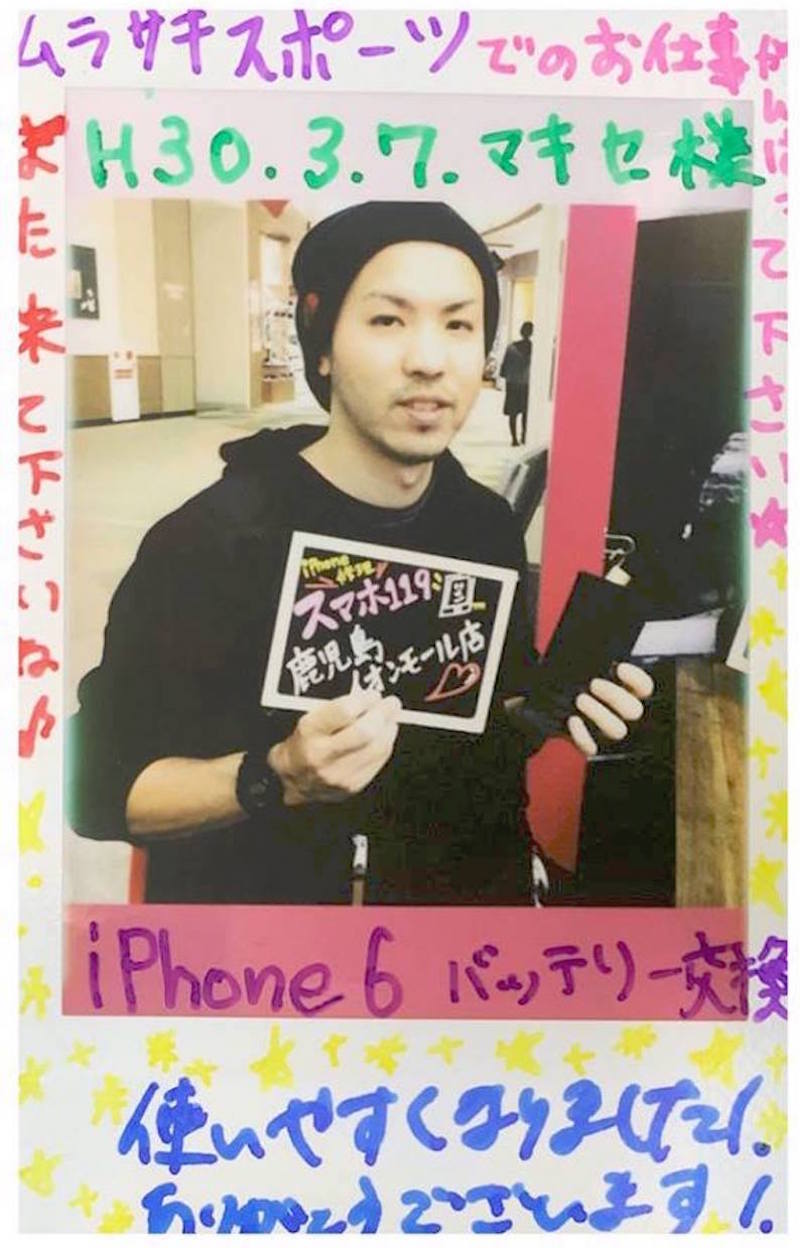 ムラサキスポーツでのお仕事
がんばって下さい★
また来て下さいね♪
H30.3.7.マキセ様
iPhone
修理
スマホ119
鹿児島
イオンモール店
iPhone6 バッテリー交換
使いやすくなりました!
ありがとうございます!